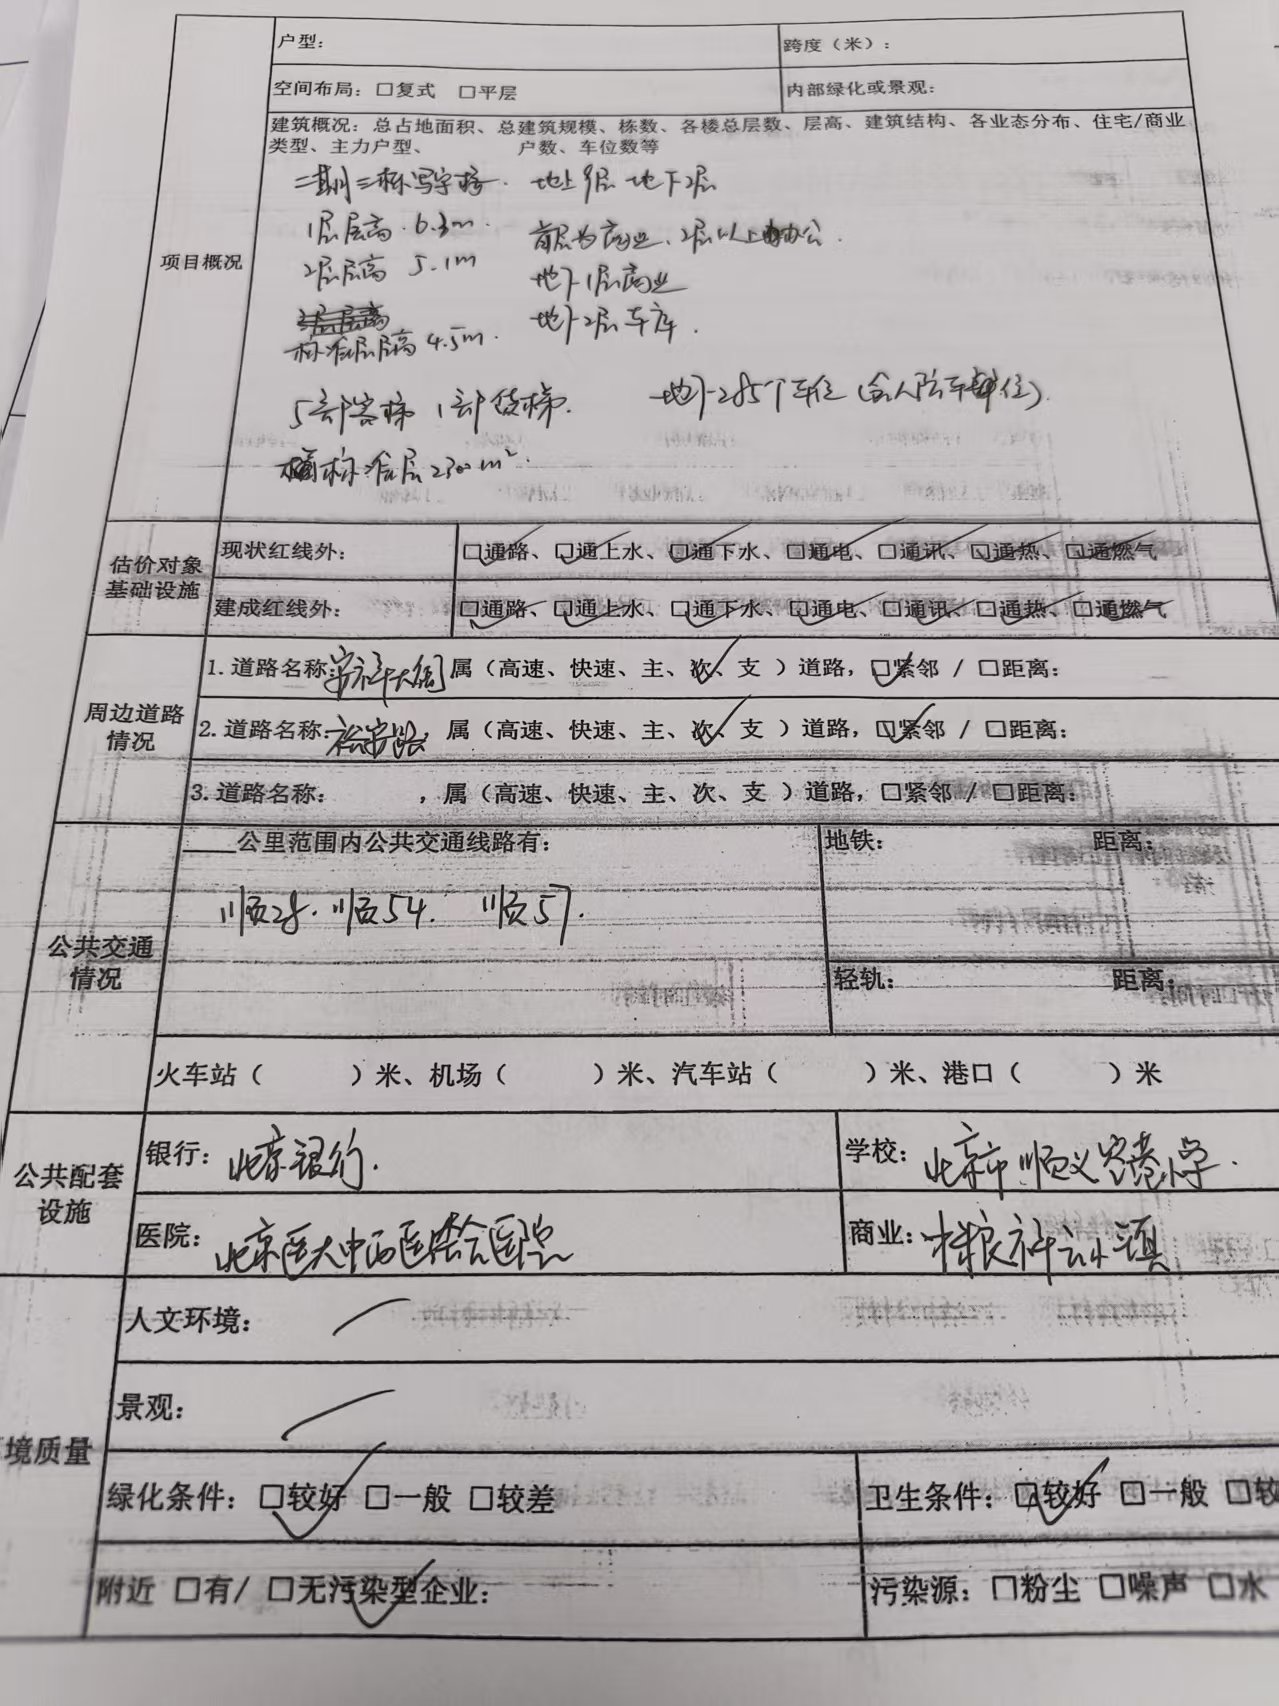 户型： 跨度（米）：
空间布局：□复式 □平层 内部绿化或景观：
建筑概况：总占地面积、总建筑规模、栋数、各楼总层数、层高、建筑结构、各业态分布、住宅/商业
类型、主力户型、 户数、车位数等
项目概况
二期三栋写字楼. 地上9层 地下2层
1层层高.6.3m. 首层为商业、2层以上办公.
2层层高 5.1m 地下1层商业
地下2层车库.
标准层层高 4.5m.
5部客梯 1部货梯. 地下285个车位（含人防车位）.
标准层2300m².
估价对象
基础设施
现状红线外： □通路、□通上水、□通下水、□通电、□通讯、□通热、□通燃气
建成红线外： □通路、□通上水、□通下水、□通电、□通讯、□通热、□通燃气
周边道路
情况
1.道路名称:安祥大街 属（高速、快速、主、次、支 ）道路，□紧邻 / □距离：
2.道路名称:裕安路 属（高速、快速、主、次、支 ）道路，□紧邻 / □距离：
3.道路名称： ，属（高速、快速、主、次、支 ）道路，□紧邻 / □距离：
公共交通
情况
____公里范围内公共交通线路有： 地铁： 距离：
顺28. 顺54. 顺57.
轻轨： 距离：
火车站（ ）米、机场（ ）米、汽车站（ ）米、港口（ ）米
公共配套
设施
银行：北京银行. 学校：北京市顺义空港小学.
医院：北京医大中西医结合医院 商业：中粮祥云小镇
境质量
人文环境：
景观：
绿化条件：□较好 □一般 □较差 卫生条件：□较好 □一般 □较
附近 □有/ □无污染型企业： 污染源：□粉尘 □噪声 □水